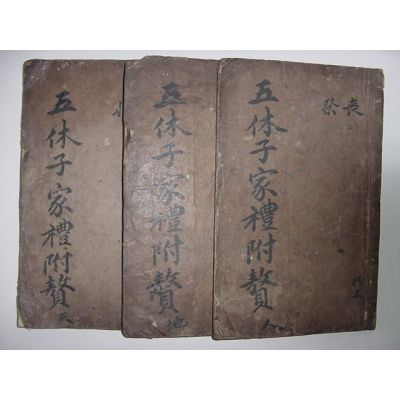 五休子家禮附贅 天
五休子家禮附贅 地
五休子家禮附贅 人
喪
祭
共三